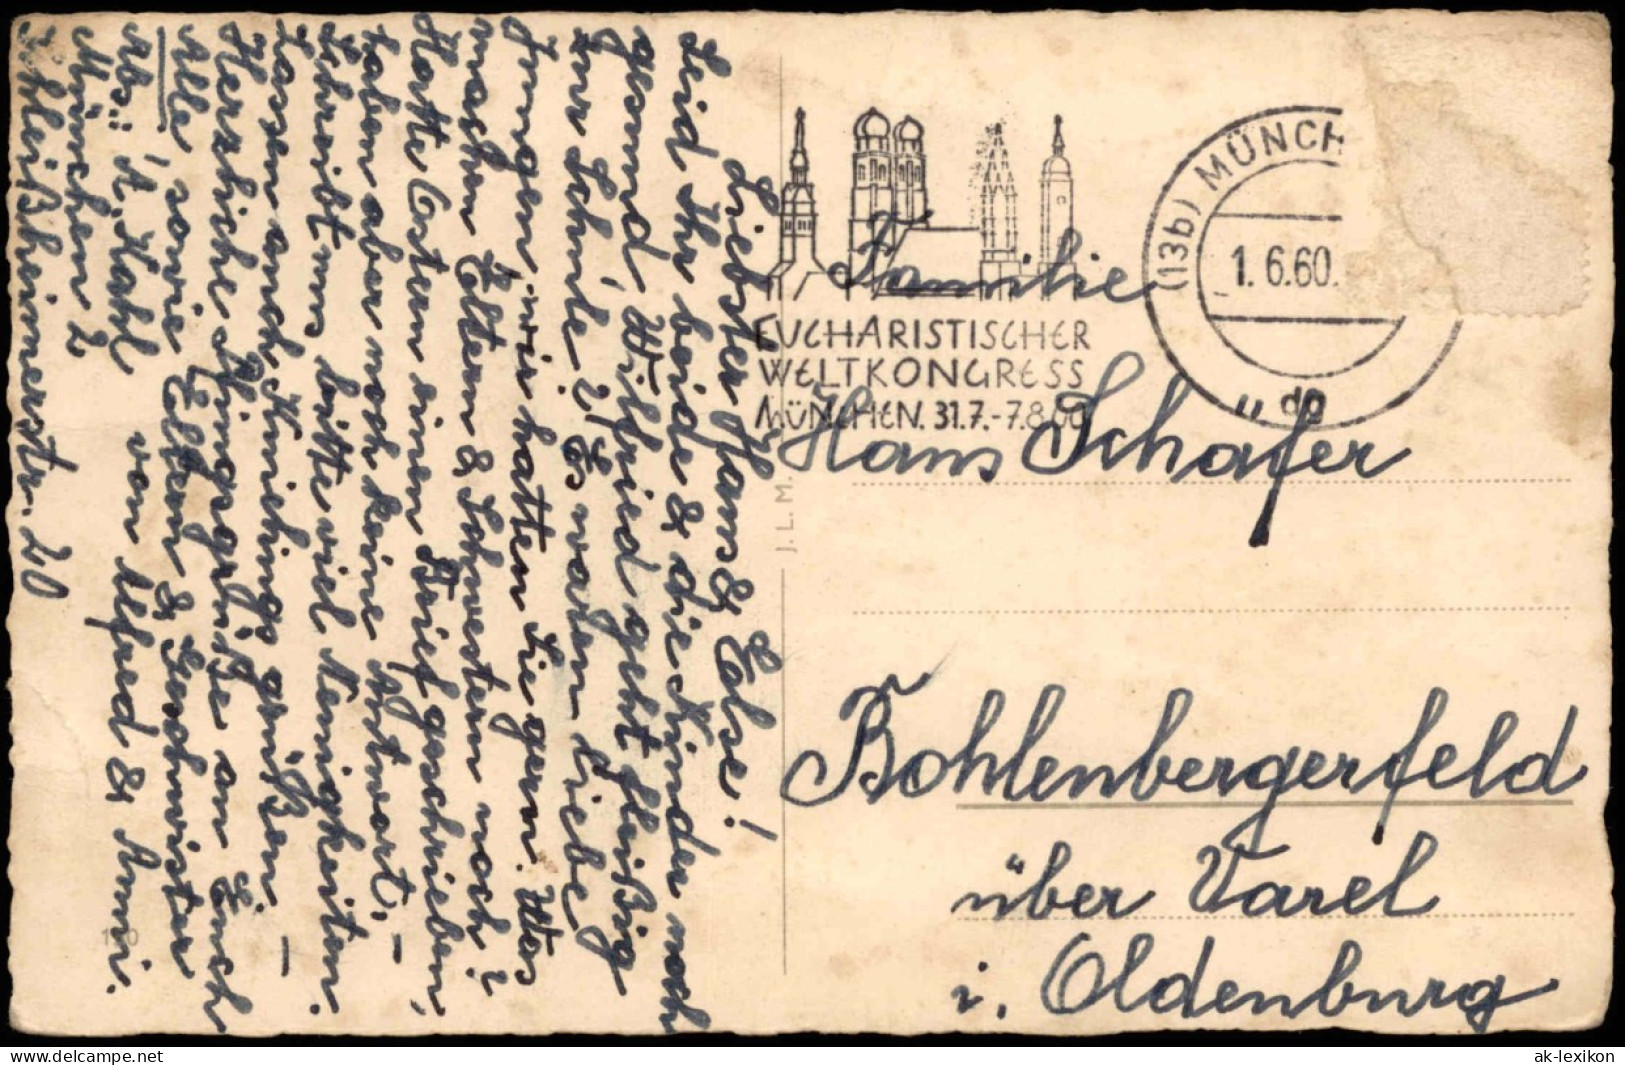 Liebster Hans & Else!
Seid Ihr beide & die Kinder noch
gesund, Wilfried geht fleißig
zur Schule? Es waren liebe
Jungen, wir hatten Sie gern. Was
machen Eltern & Schwestern noch?
Hatte Ostern einen Brief geschrieben,
haben aber noch keine Antwort. -
Schreibt uns bitte viel Neuigkeiten.
Lassen auch Kniehings grüßen. -
Herzliche Pfingstgrüße an Euch
Alle, sowie Eltern & Geschwister
von Alfred & Anni.
Abs.: A. Kahl
München 2
Schleißheimerstr. 20
J. L. M.
EUCHARISTISCHER
WELTKONGRESS
MÜNCHEN. 31.7.-7.8.60
(13b) MÜNCH
1.6.60.
dg
Familie
Hans Schäfer
Bohlenbergerfeld
über Varel
i. Oldenburg
ak-lexikon Historische Ansichtskarten - www.ak-ansichtskarten.de
ak-lexikon